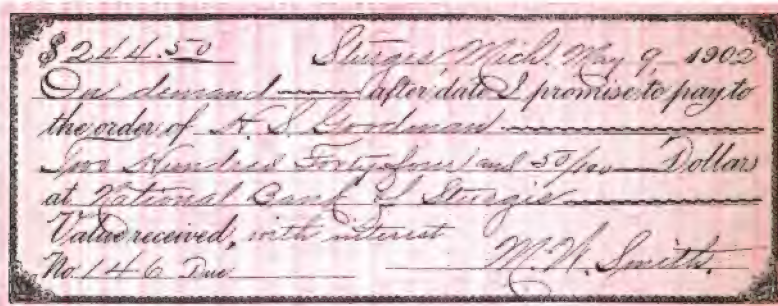 $244.50 Sturgis, Mich. May 9, 1902
On demand after date I promise to pay to
the order of H. S. Goodman
Two Hundred Forty four and 50/100 Dollars
at National Bank of Sturgis
Value received, with interest
No. 146 Due M. W. Smith.